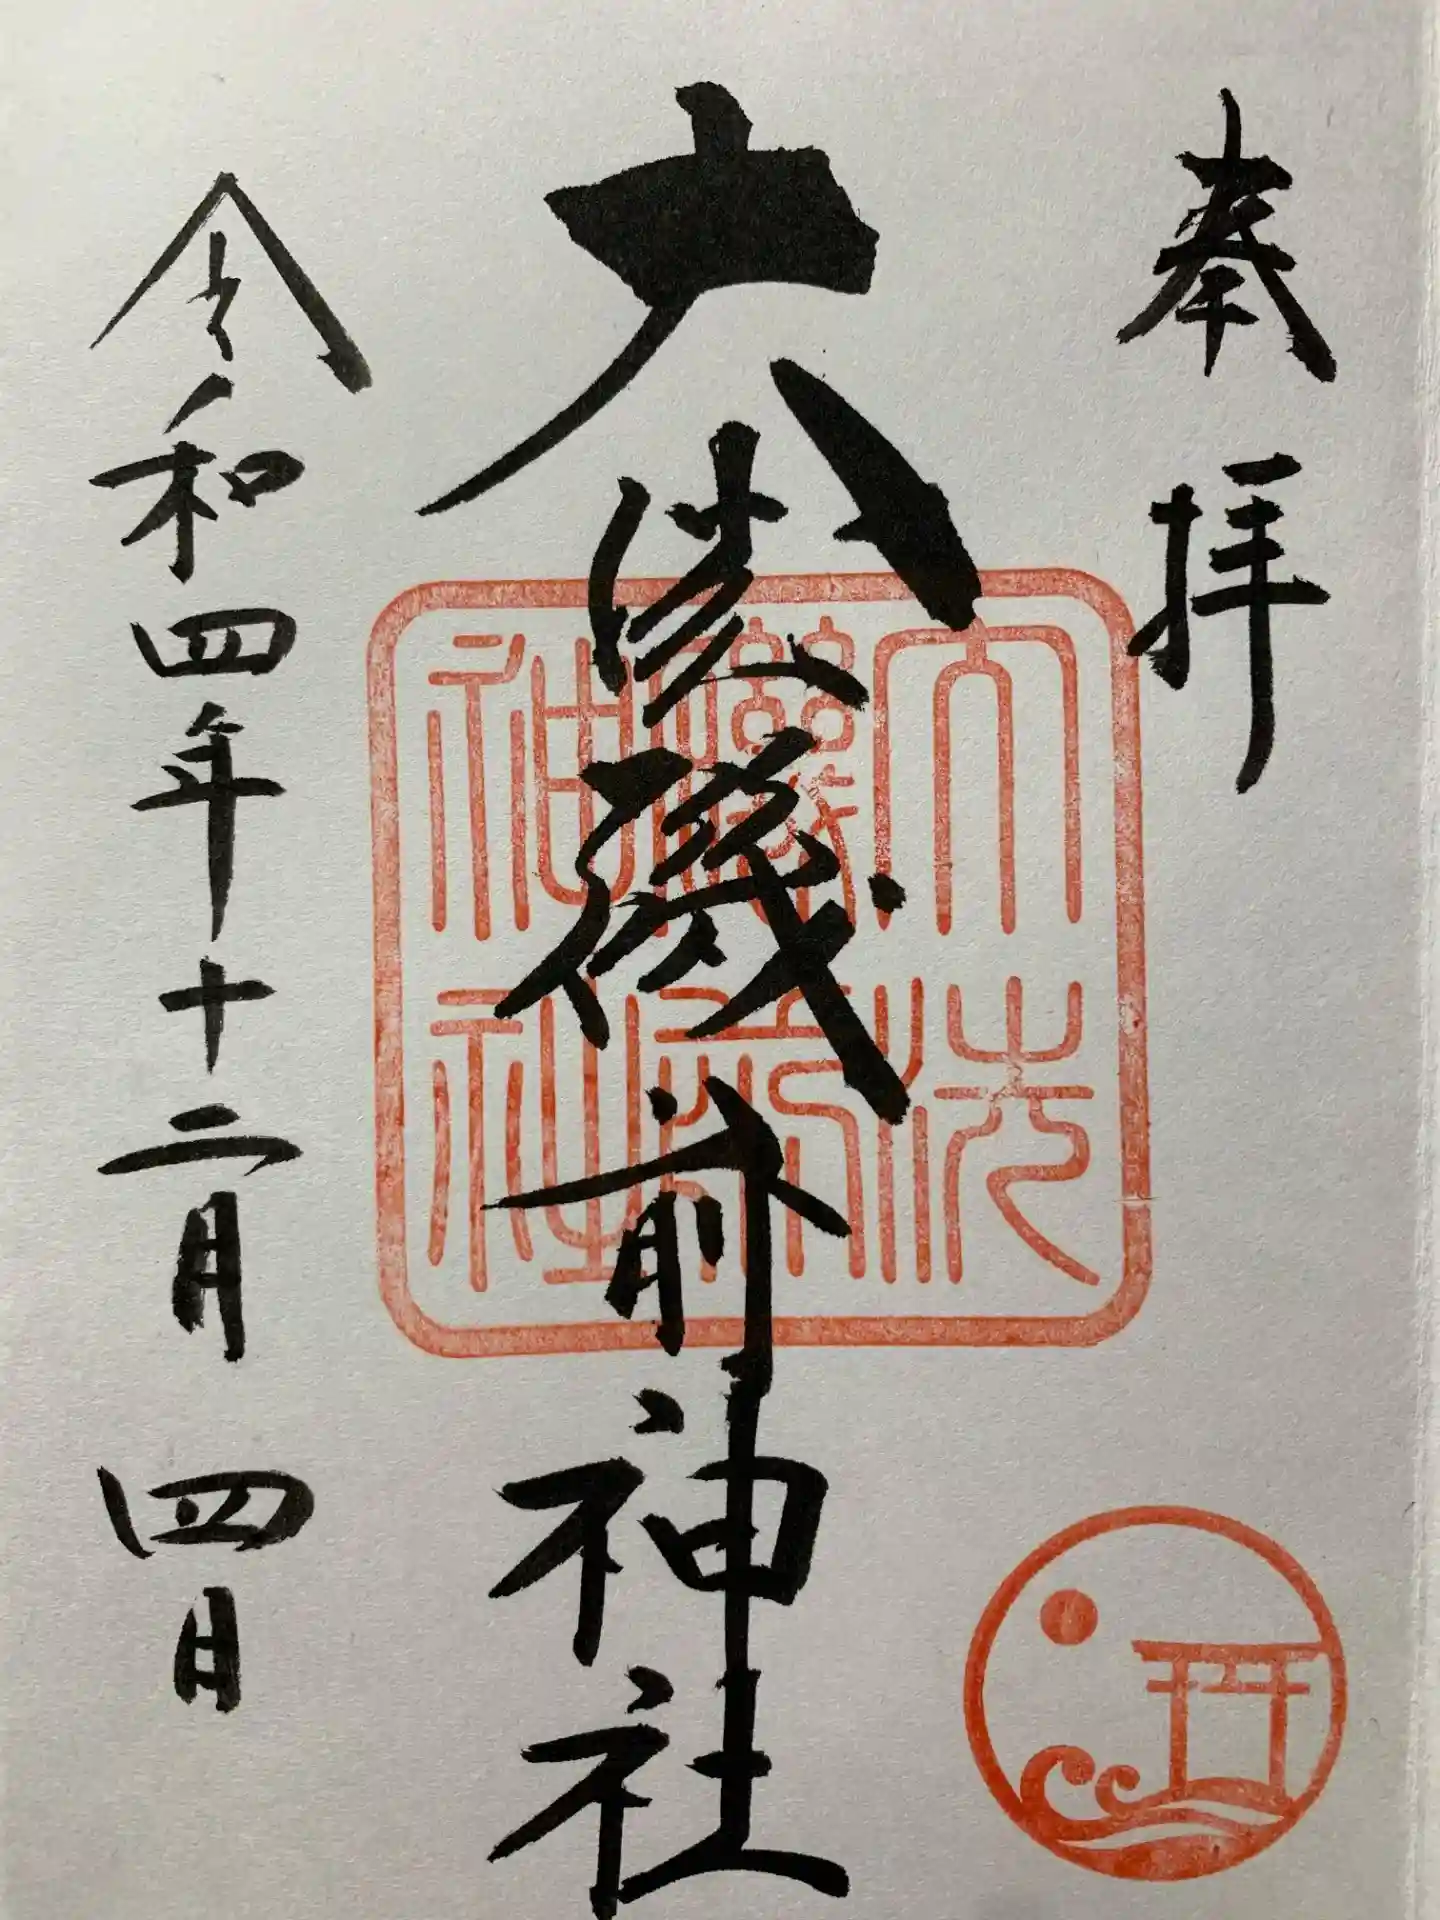 奉拝
大洗磯前神社
大洗磯前神社
令和四年十二月四日